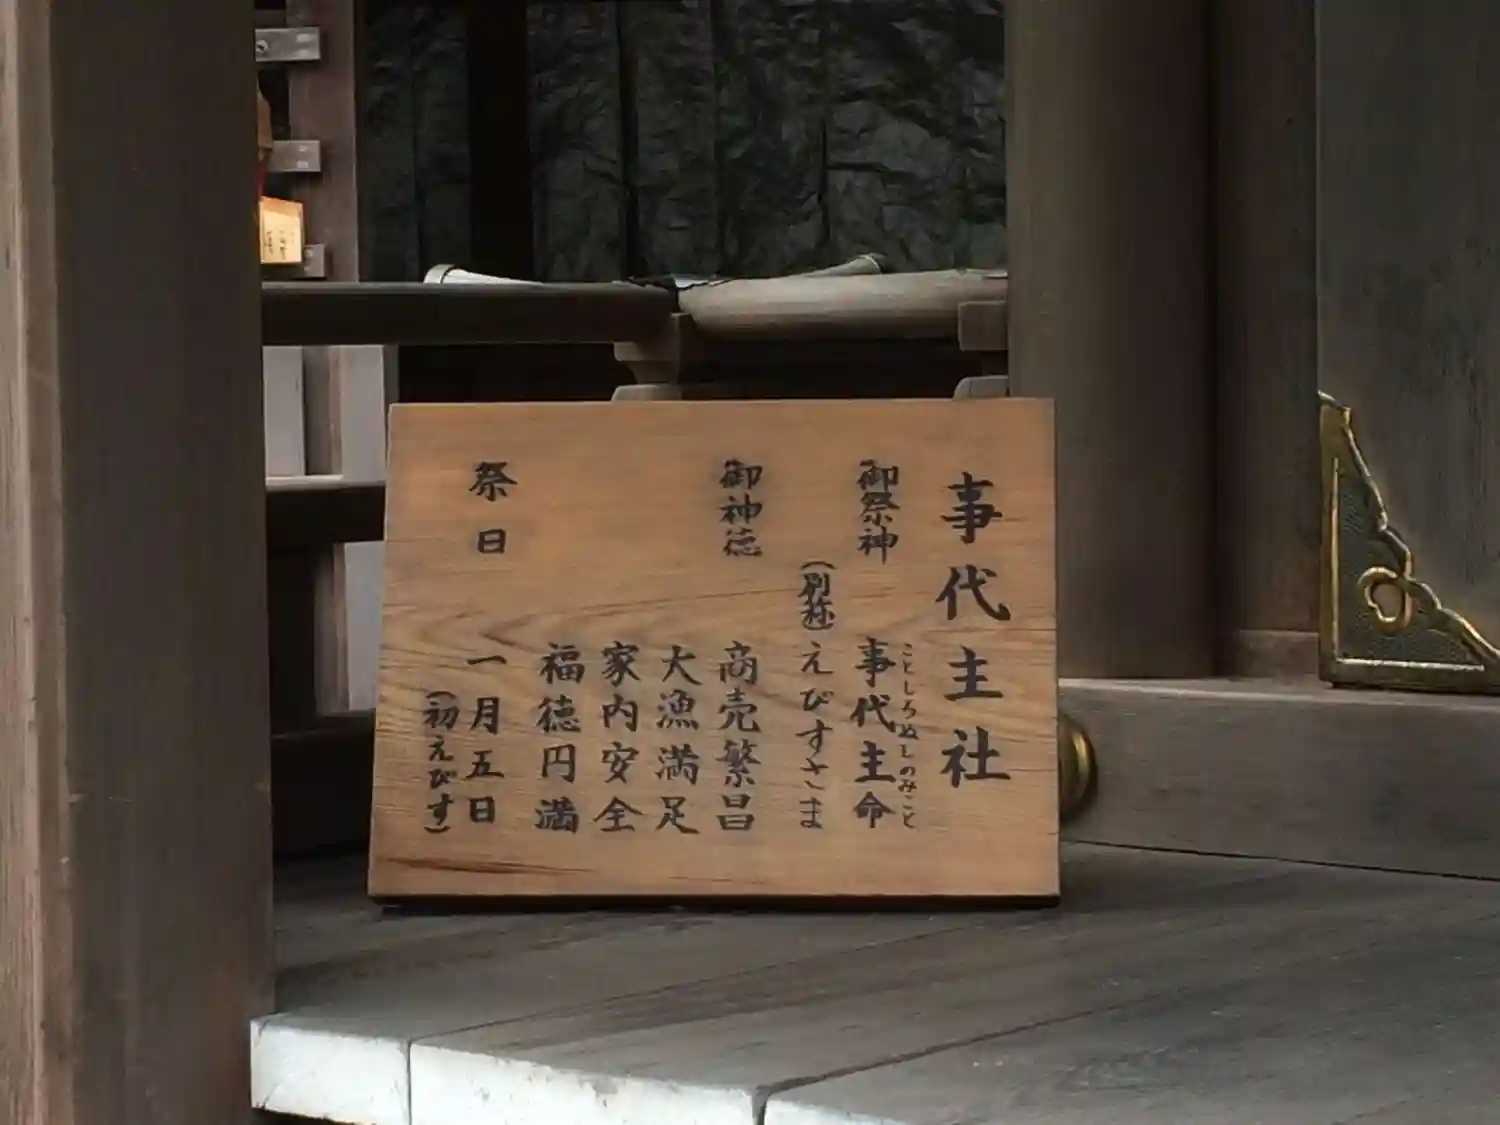 事代主社
御祭神 事代主命
ことしろぬしのみこと
(別称) えびすさま
御神徳 商売繁昌
大漁満足
家内安全
福徳円満
祭日 一月五日
(初えびす)